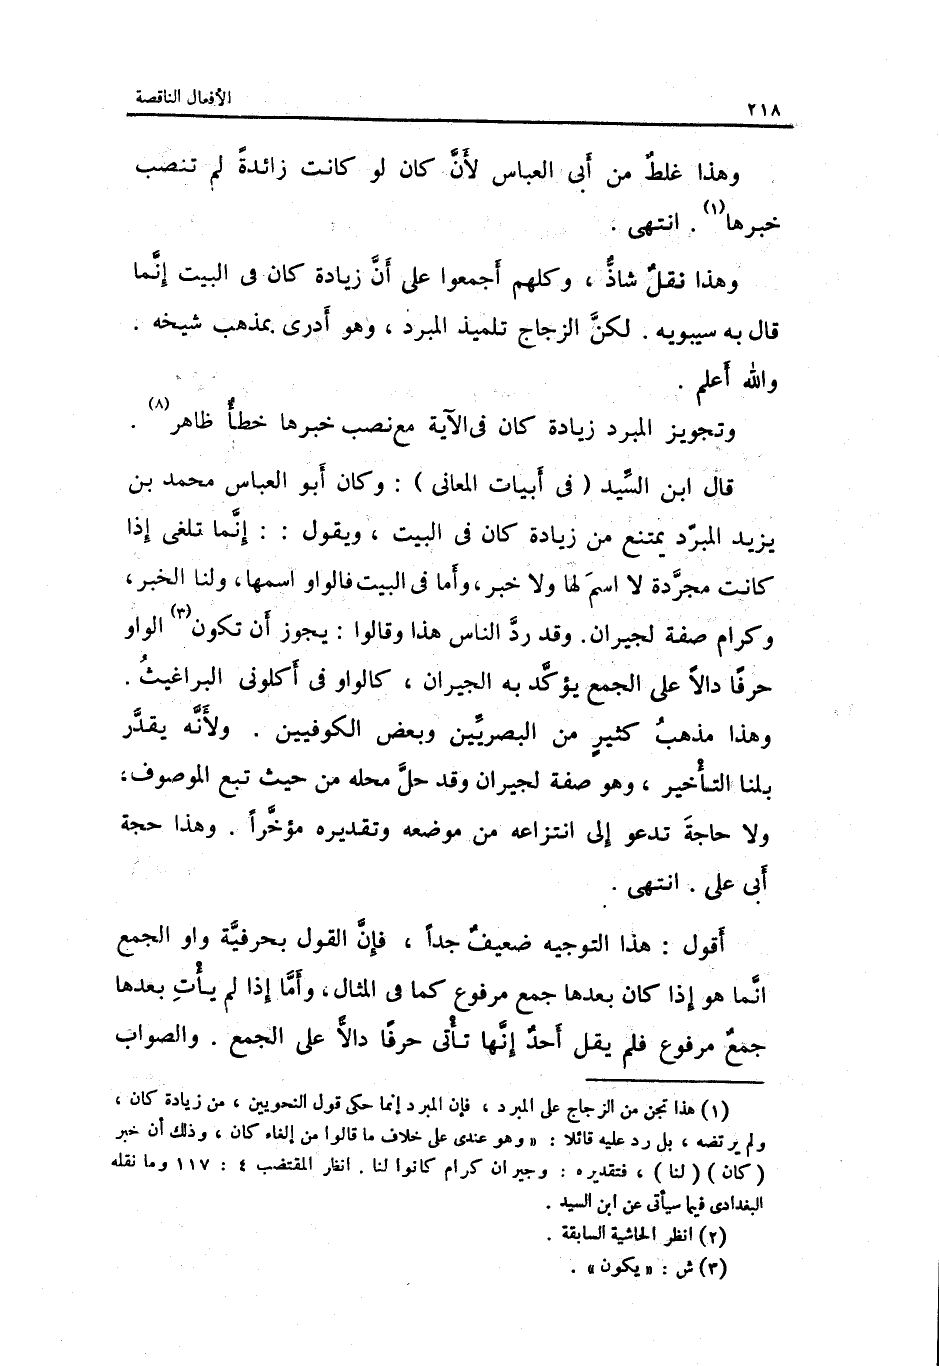 ٢١٨ الأفعال الناقصة
وهذا غلطٌ من أبى العباس لأنَّ كان لو كانت زائدةً لم تنصب
خبرها(١) . انتهى .
وهذا نقلٌ شاذٌّ ، وكلهم أجمعوا على أنَّ زيادة كان فى البيت إنَّما
قال به سيبويه . لكنَّ الزجاج تلميذ المبرد ، وهو أدرى بمذهب شيخه .
والله أعلم .
وتجويز المبرد زيادة كان فى الآية مع نصب خبرها خطأٌ ظاهر(٨) .
قال ابن السِّيد ( فى أبيات المعانى ) : وكان أبو العباس محمد بن
يزيد المبرّد يمتنع من زيادة كان فى البيت ، ويقول : : إنَّما تلغى إذا
كانت مجرَّدة لا اسمَ لها ولا خبر ، وأما فى البيت فالواو اسمها ، ولنا الخبر ،
وكرام صفة لجيران . وقد ردَّ الناس هذا وقالوا : يجوز أن تكون(٣) الواو
حرفًا دالاً على الجمع يؤكَّد به الجيران ، كالواو فى أكلونى البراغيثُ .
وهذا مذهبُ كثيرٍ من البصريِّين وبعض الكوفيين . ولأنَّه يقدَّر
بلنا التأخير ، وهو صفة لجيران وقد حلَّ محله من حيث تبع الموصوف ،
ولا حاجةَ تدعو إلى انتزاعه من موضعه وتقديره مؤخَّراً . وهذا حجة
أبى على . انتهى .
أقول : هذا التوجيه ضعيفٌ جداً ، فإنَّ القول بحرفيَّة واو الجمع
انَّما هو إذا كان بعدها جمع مرفوع كما فى المثال ، وأمَّا إذا لم يأتِ بعدها
جمعٌ مرفوع فلم يقل أحدٌ إنَّها تأتى حرفًا دالاً على الجمع . والصواب
(١) هذا تجن من الزجاج على المبرد ، فإن المبرد إنما حكى قول النحويين ، من زيادة كان ،
ولم يرتضه ، بل رد عليه قائلا : « وهو عندى على خلاف ما قالوا من إلغاء كان ، وذلك أن خبر
( كان ) ( لنا ) ، فتقديره : وجيران كرام كانوا لنا . انظر المقتضب ٤ : ١١٧ وما نقله
البغدادى فيما سيأتى عن ابن السيد .
(٢) انظر الحاشية السابقة .
(٣) ش : « يكون » .